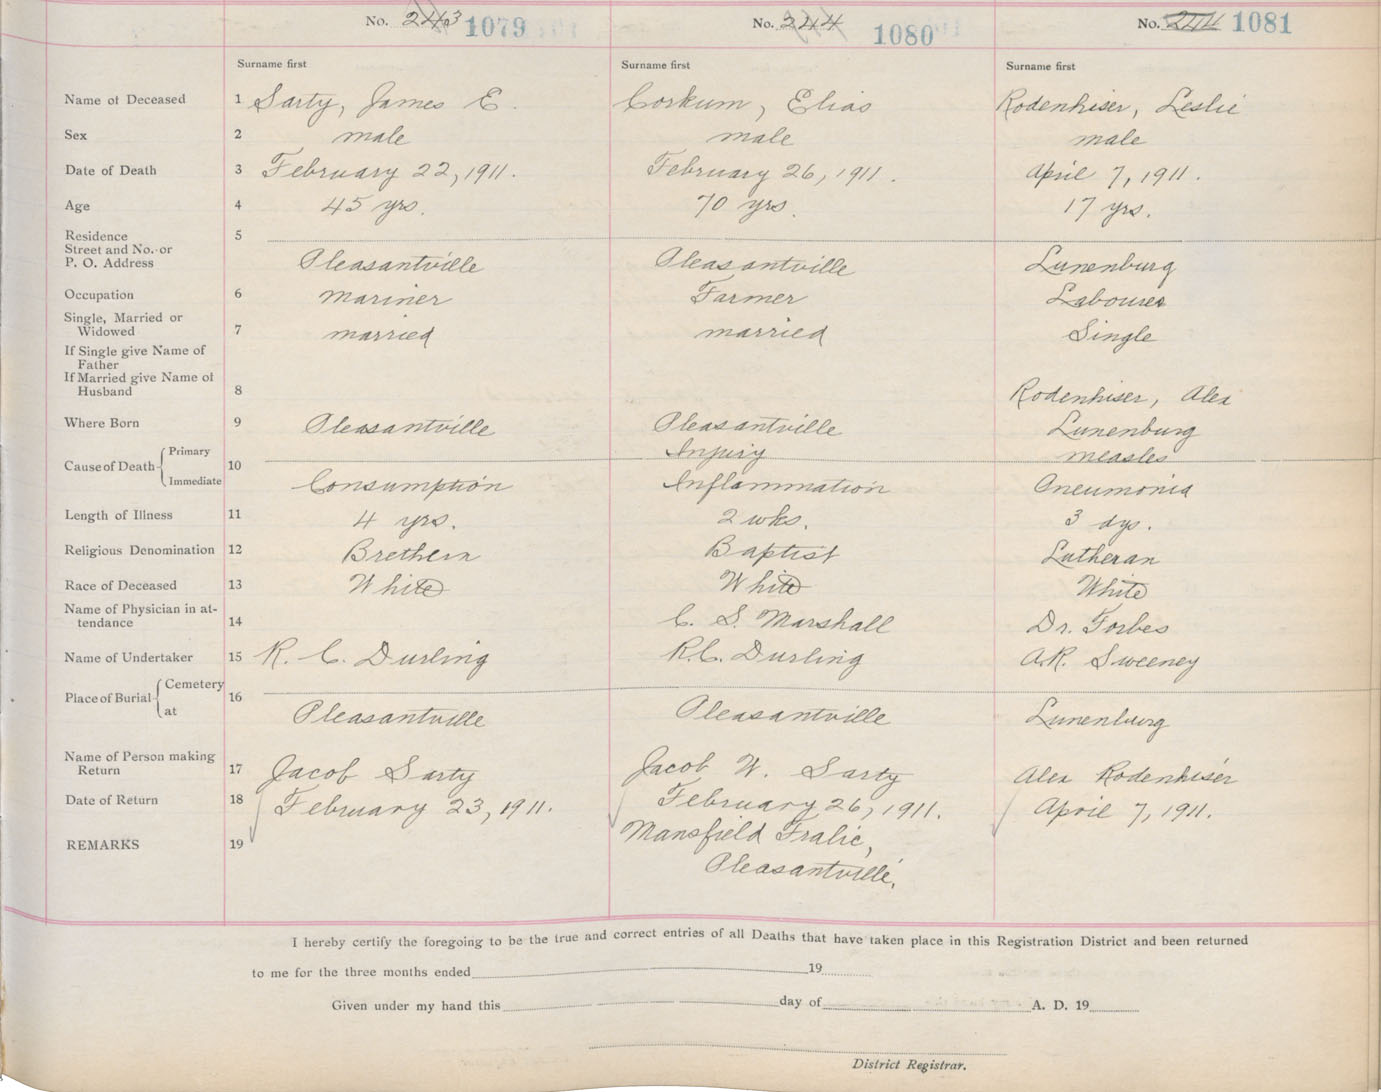 No. 243 1079 No. 244 1080 No. 244 1081
Surname first Surname first Surname first
Name of Deceased 1 Sarty, James E. Corkum, Elias Rodenhiser, Leslie
Sex 2 male male male
Date of Death 3 February 22, 1911. February 26, 1911. April 7, 1911.
Age 4 45 yrs. 70 yrs. 17 yrs.
Residence 5
Street and No. or
P. O. Address Pleasantville Pleasantville Lunenburg
Occupation 6 mariner Farmer Labourer
Single, Married or
Widowed 7 married married Single
If Single give Name of
Father
If Married give Name of
Husband 8 Rodenhiser, Alex
Where Born 9 Pleasantville Pleasantville Lunenburg
Cause of Death Primary Injury measles
10
Immediate Consumption Inflammation Pneumonia
Length of Illness 11 4 yrs. 2 wks. 3 dys.
Religious Denomination 12 Brethern Baptist Lutheran
Race of Deceased 13 White White White
Name of Physician in at-
tendance 14 C. S. Marshall Dr. Forbes
Name of Undertaker 15 R. C. Durling R.C. Durling A.R. Sweeney
Place of Burial Cemetery 16
at Pleasantville Pleasantville Lunenburg
Name of Person making
Return 17 Jacob Sarty Jacob W. Sarty Alex Rodenhiser
Date of Return 18 February 23, 1911. February 26, 1911. April 7, 1911.
REMARKS 19 Mansfield Fralic,
Pleasantville,
I hereby certify the foregoing to be the true and correct entries of all Deaths that have taken place in this Registration District and been returned
to me for the three months ended 19
Given under my hand this day of A. D. 19
District Registrar.